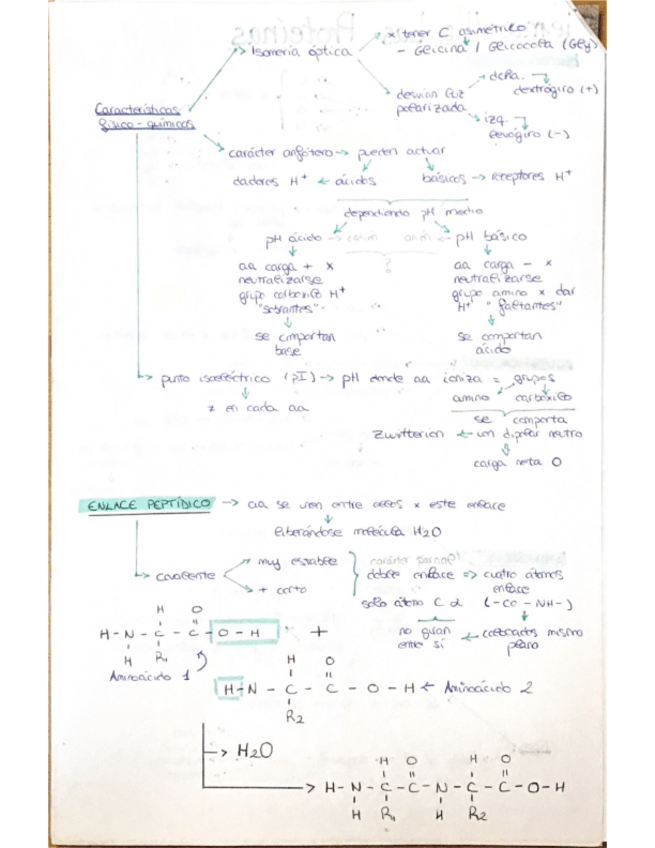 x tener C asimétrico
Isomería óptica
- Glicina / Glicocola (Gly)
desvían luz
polarizada
dcha.
dextrógiro (+)
izq.
levógiro (-)
Características
físico-químicas
carácter anfótero → pueden actuar
dadores H⁺ ← ácidos
básicos → receptores H⁺
dependiendo pH medio
pH ácido →
← pH básico
?
aa carga + x
neutralizarse
grupo carboxilo H⁺
"sobrantes"
aa carga - x
neutralizarse
grupo amino x dar
H⁺ "faltantes"
se comportan
base
se comportan
ácido
punto isoeléctrico (pI) → pH donde aa ioniza = grupos
≠ en cada aa
amino
carboxilo
se comporta
Zwitterion ← un dipolar neutro
carga neta 0
ENLACE PEPTÍDICO → aa se unen entre ellos x este enlace
liberándose molécula H2O
covalente
muy estable
+ corto
carácter parcial
doble enlace => cuatro átomos
enlace
solo átomo C α (-CO-NH-)
no giran
entre sí
← colocados mismo
plano
H O
H-N-C-C-O-H +
H R1
Aminoácido 1
H O
H-N-C-C-O-H ← Aminoácido 2
R2
→ H2O
H O H O
→ H-N-C-C-N-C-C-O-H
H R1 H R2